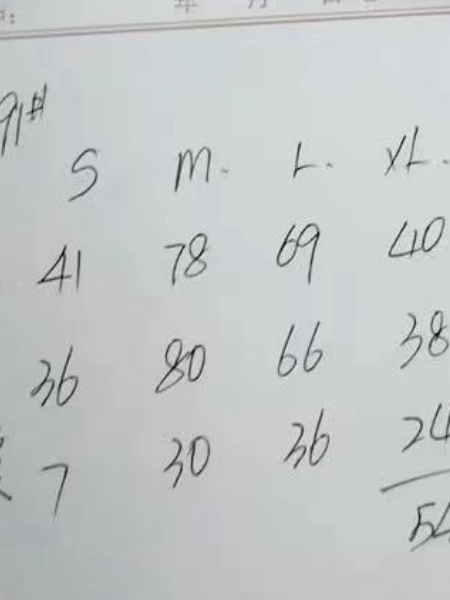 年 月
91#
S M. L. XL.
41 78 69 40
36 80 66 38
7 30 36 24
54